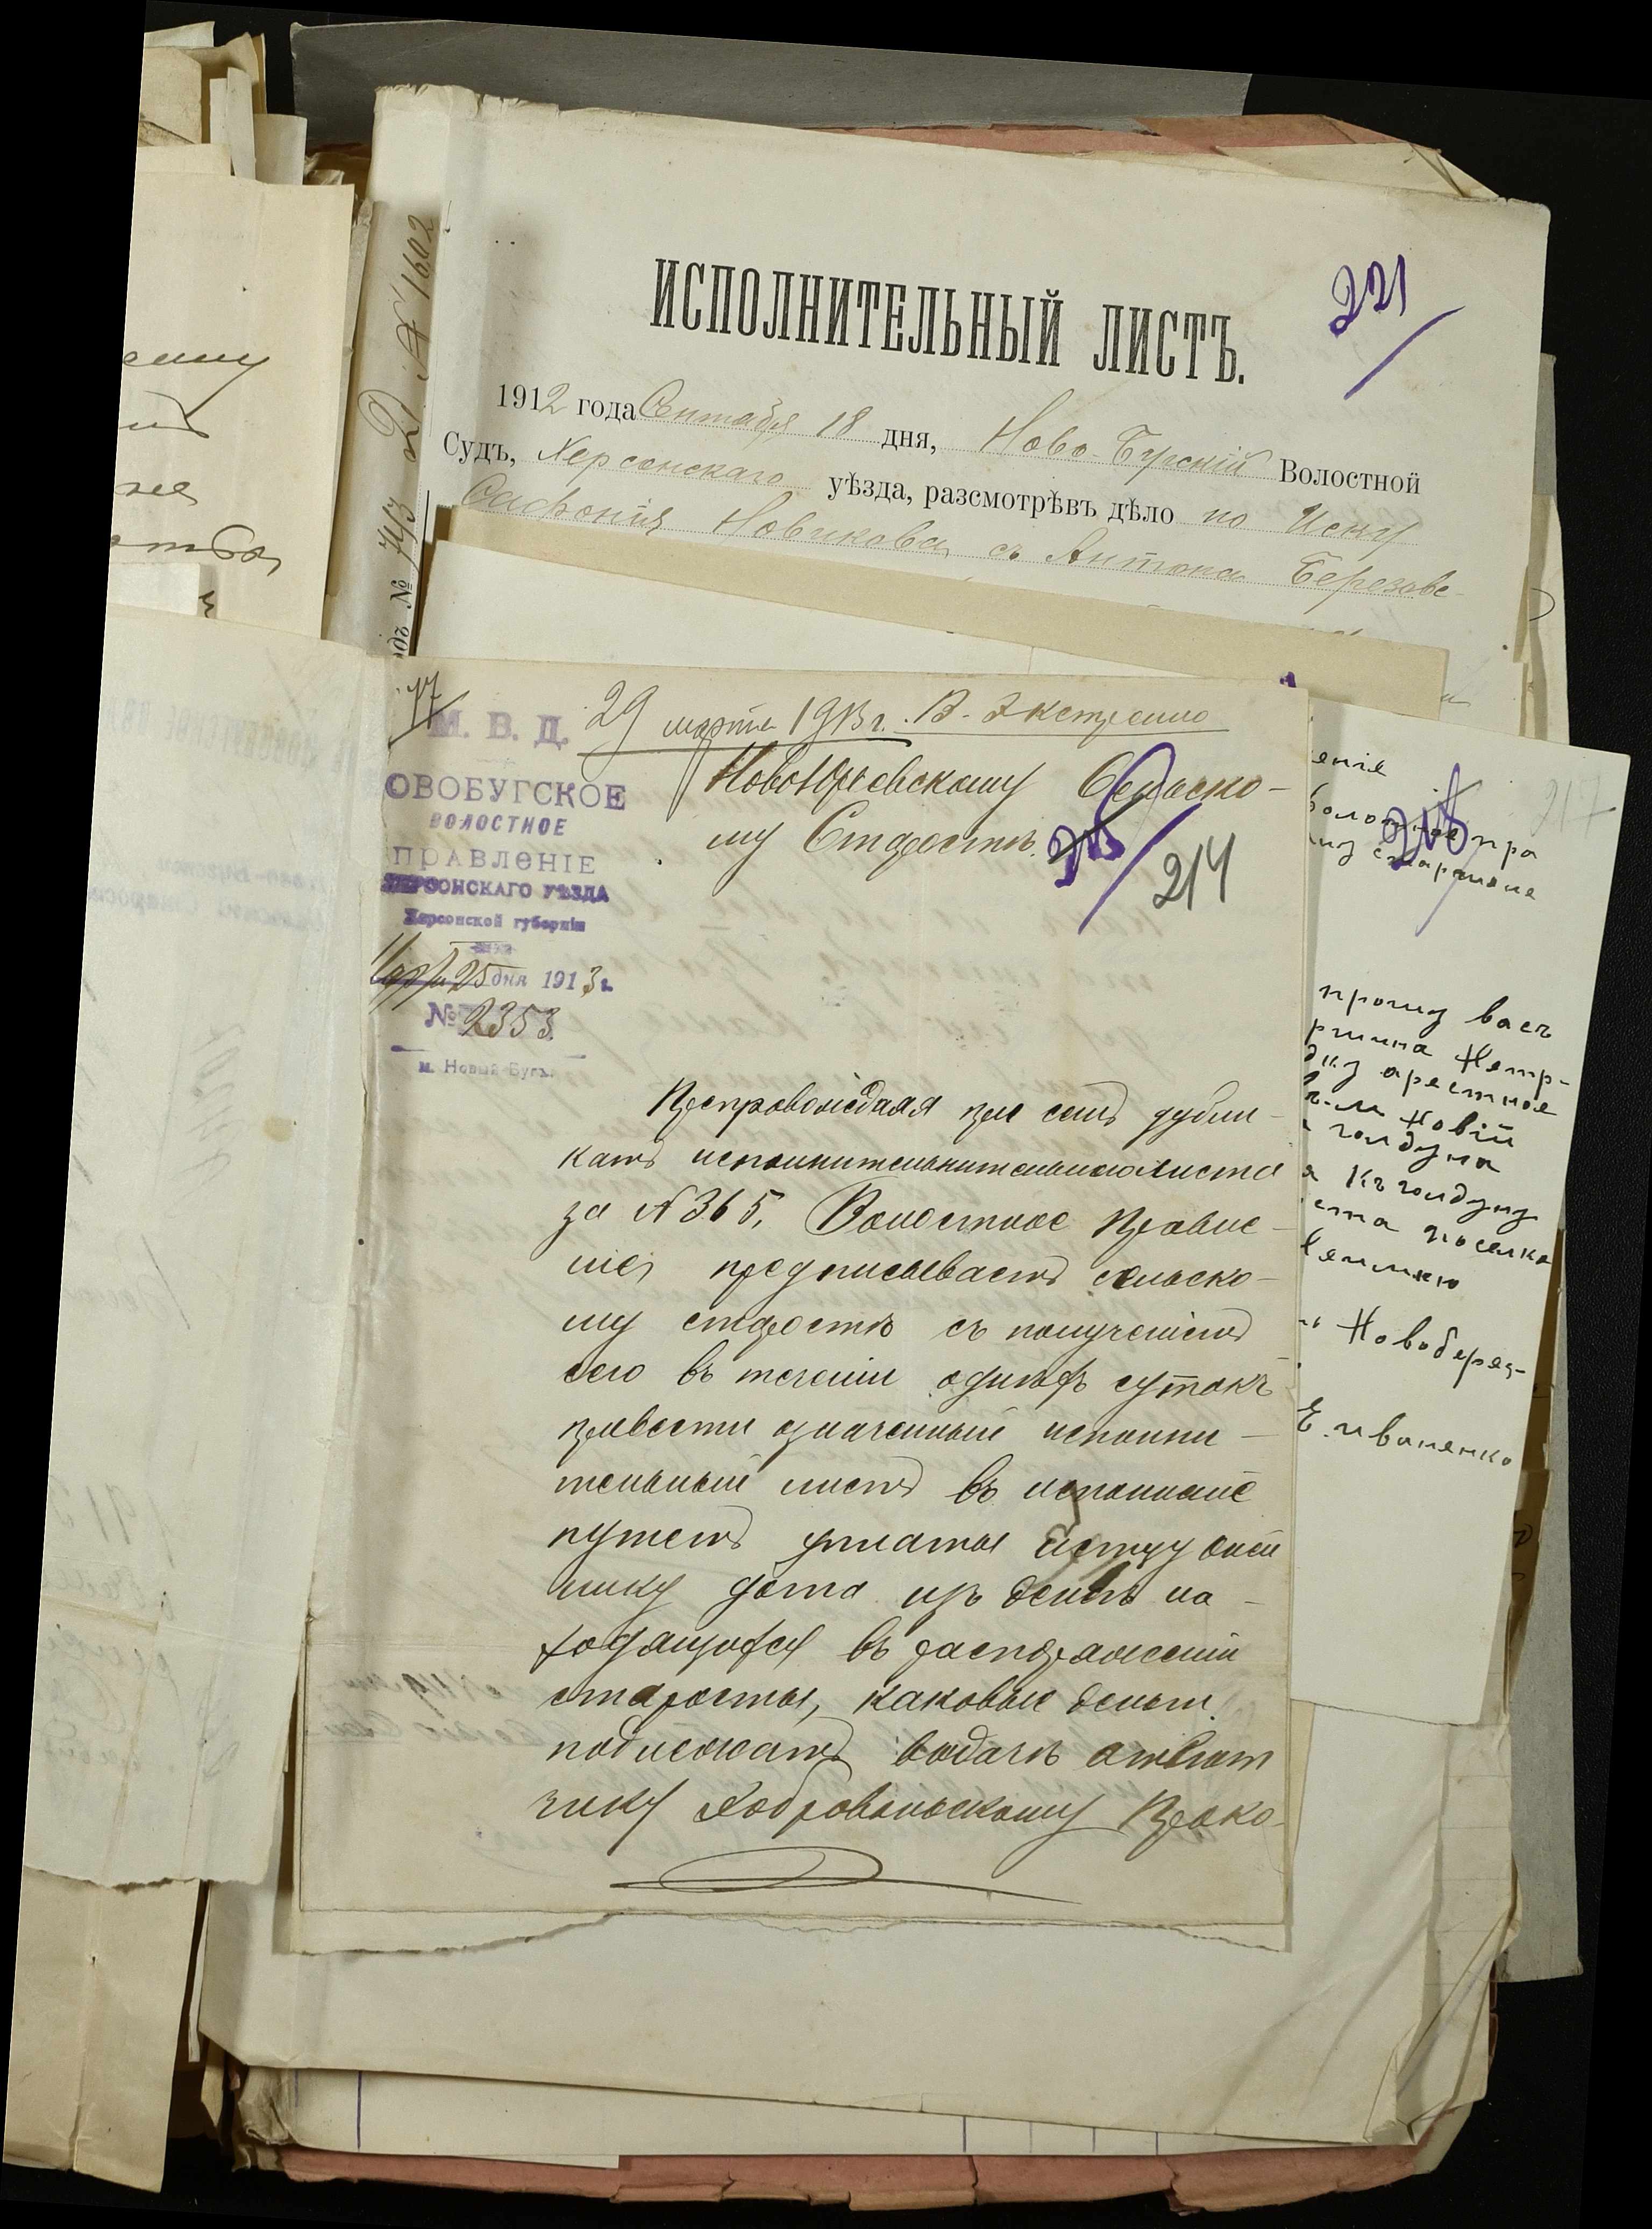 ИСПОЛНИТЕЛЬНЫЙ ЛИСТЪ.
221
1912 года Сентября 18 дня, Ново-Бугскій Волостной
Судъ, Херсонскаго уѣзда, разсмотрѣвъ дѣло по Иску
Сафонія Новикова съ Антона Березовс-
№ 743 Д № 1602
17
М. В. Д.
ОВОБУГСКОЕ
ВОЛОСТНОЕ
ПРАВЛЕНІЕ
ХЕРСОНСКАГО УѢЗДА
Херсонской губерніи
Марта 25 дня 1913 г.
№ 2353
м. Новый Бугъ.
29 марта 1913 г. В. Экстренно
НовоЮрьевскому Сельско-
му Старостѣ.
214
Препровождая при семъ дубли-
катъ исполнительнительнаго листа
за № 365, Волостное Правле-
ніе предписываетъ сельско-
му старостѣ съ полученіемъ
сего въ теченіи однѣхъ сутокъ
привести означенный исполни-
тельный листъ въ исполненіе
путемъ уплаты истцу
нику дѣла изъ денегъ на-
ходящихся въ распоряженіи
старосты, каковые деньги
подлежатъ выдачѣ отвѣт
чику Добровольскому Проко-
енія
волостное пра
старшине
217
218
прошу васъ
ршина Петр-
арестное
Новій
голдуна
къ голдуну
поселка
Новоберез-
Е. иваненко
ему